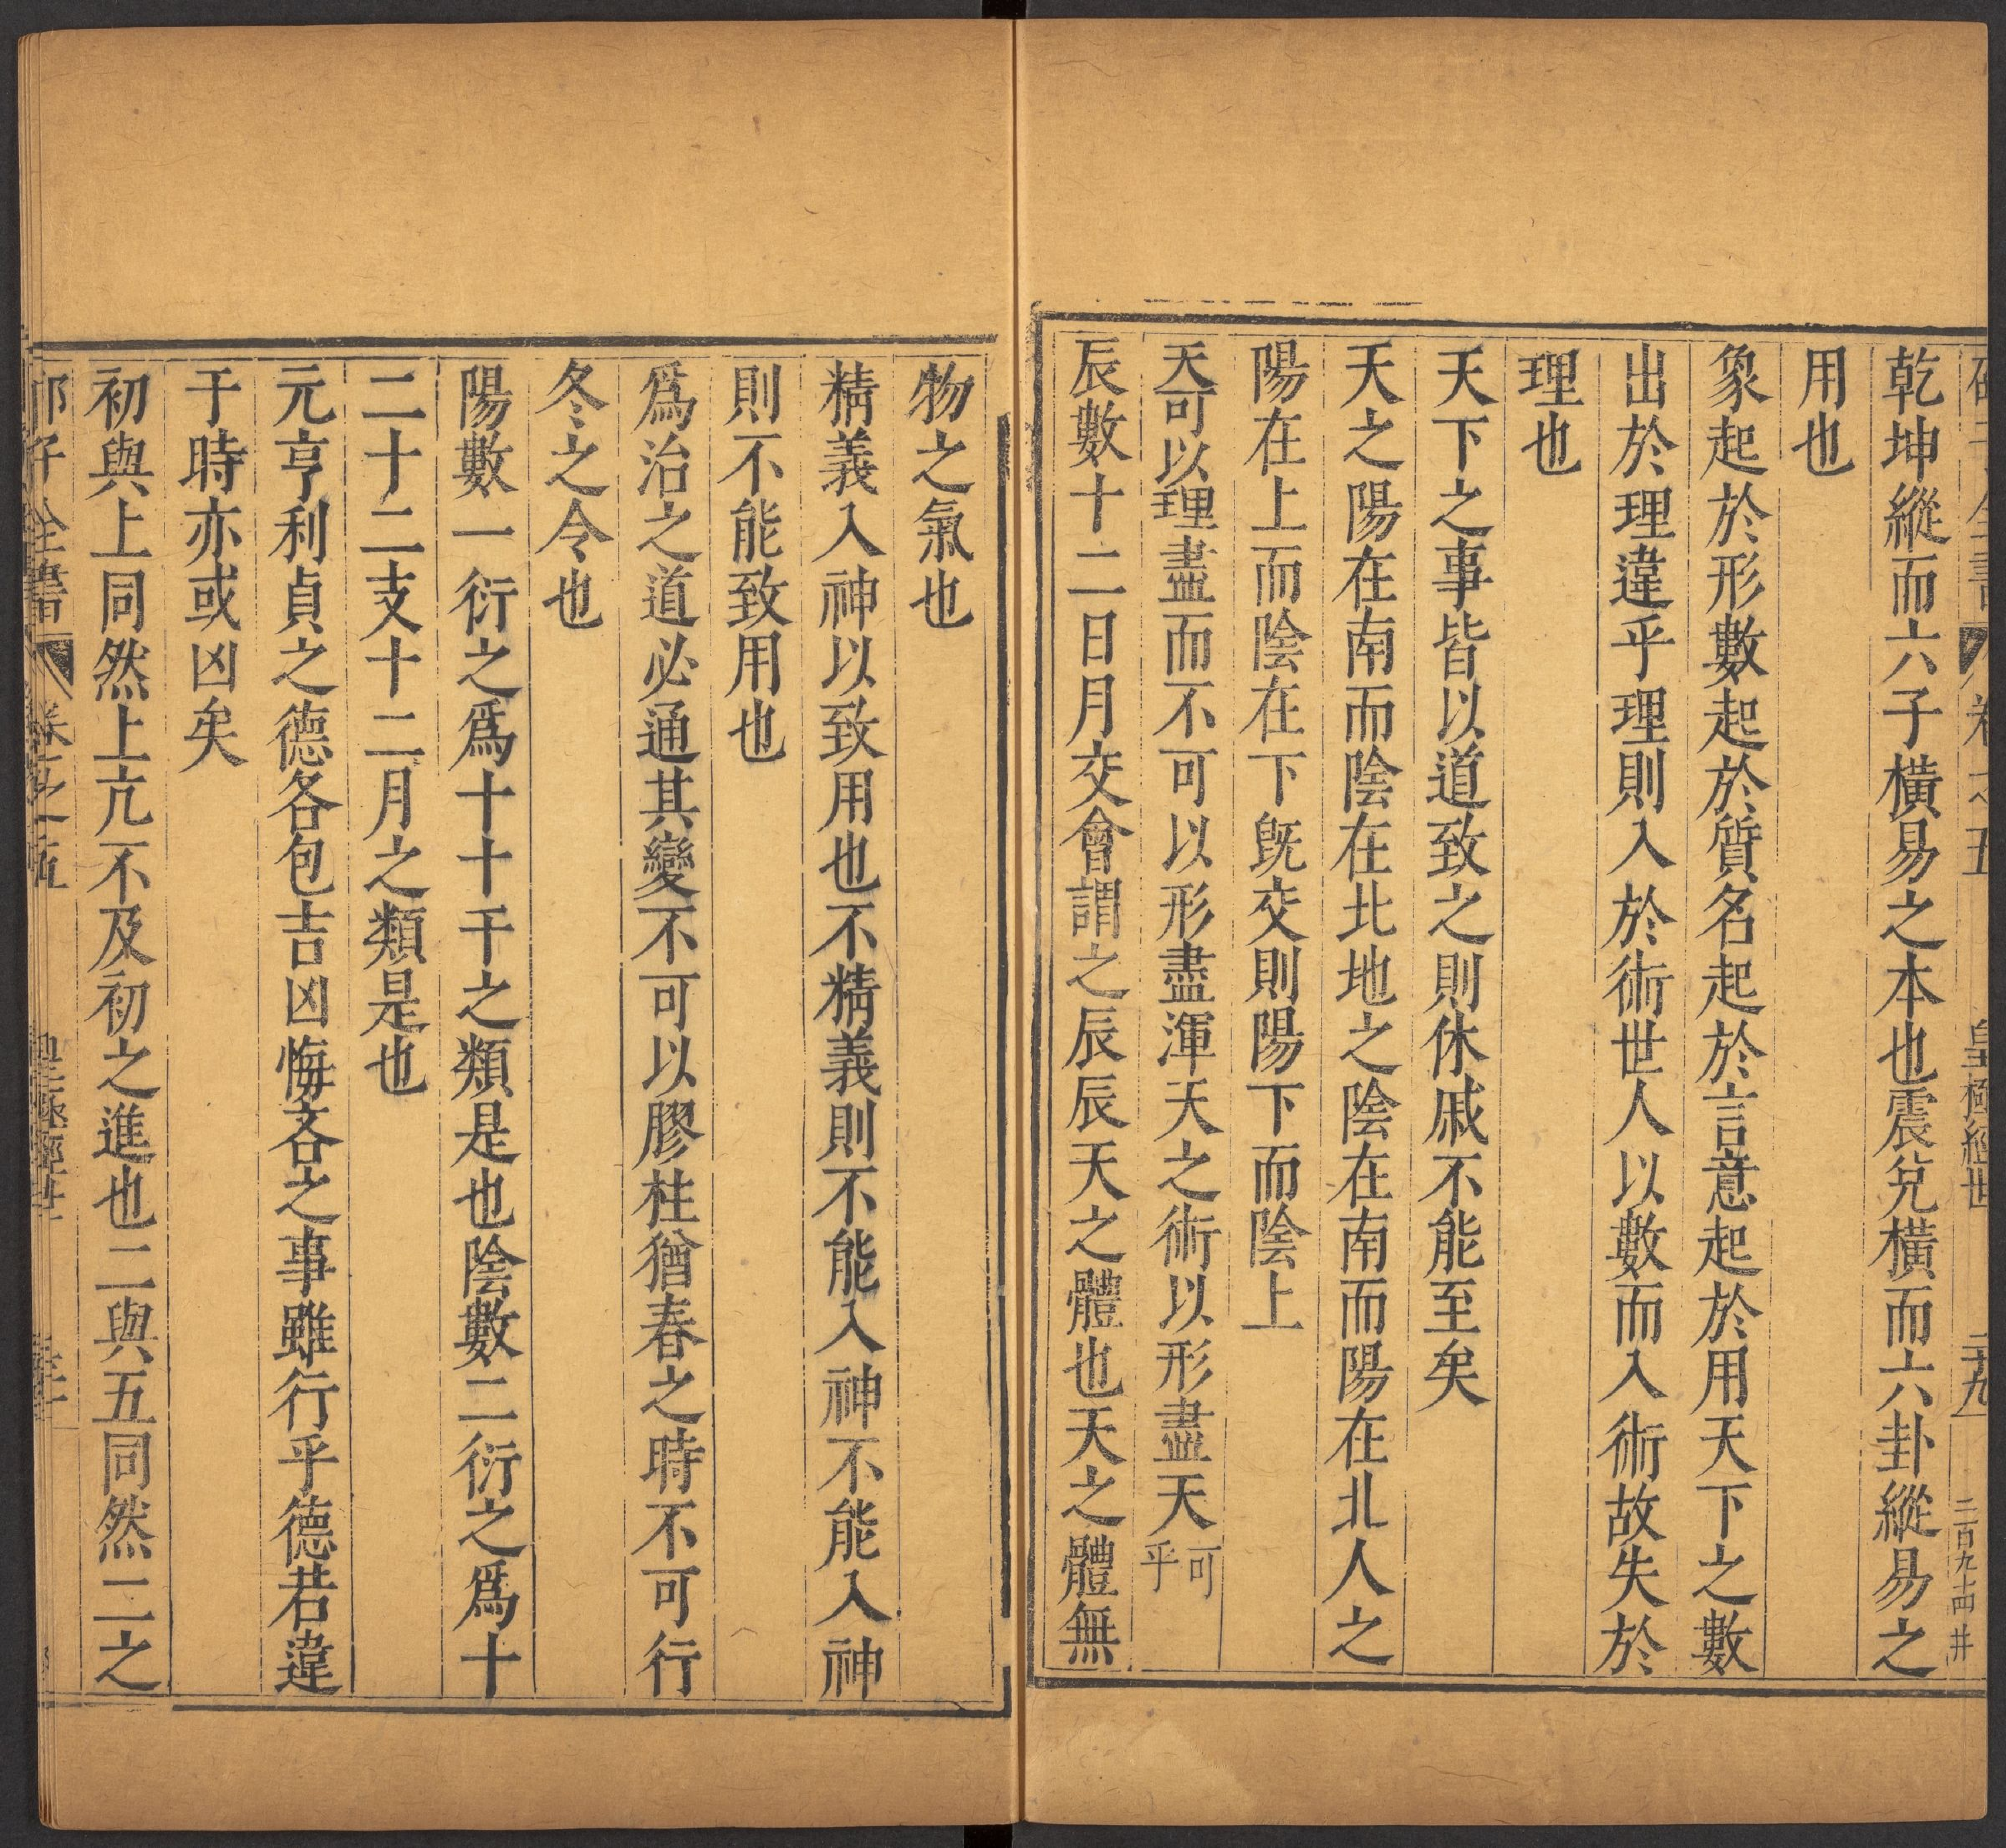 卷之五
皇極經世
二十九
二百九十四
井
乾坤縱而六子橫易之本也震兌橫而六卦縱易之
用也
象起於形數起於質名起於言意起於用天下之數
出於理違乎理則入於術世人以數而入術故失於
理也
天下之事皆以道致之則休戚不能至矣
天之陽在南而陰在北地之陰在南而陽在北人之
陽在上而陰在下旣交則陽下而陰上
天可以理盡而不可以形盡渾天之術以形盡天可
乎
辰數十二日月交會謂之辰辰天之體也天之體無
物之氣也
精義入神以致用也不精義則不能入神不能入神
則不能致用也
爲治之道必通其變不可以膠柱猶春之時不可行
冬之令也
陽數一衍之爲十十干之類是也陰數二衍之爲十
二十二支十二月之類是也
元亨利貞之德各包吉凶悔吝之事雖行乎德若違
于時亦或凶矣
初與上同然上亢不及初之進也二與五同然二之
邵子全書
卷之五
皇極經世